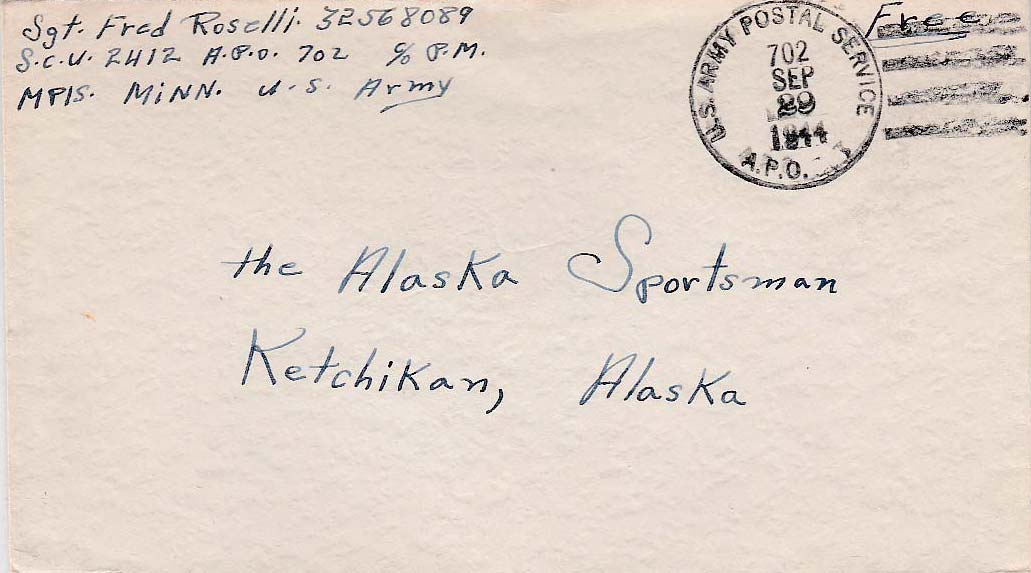 Sgt. Fred Roselli 32568089
S.C.U. 2412 A.P.O. 702 c/o P.M.
MPls. MiNN. U.S. Army
Free
U.S. ARMY POSTAL SERVICE
702
SEP
29
1944
A.P.O.
the Alaska Sportsman
Ketchikan, Alaska